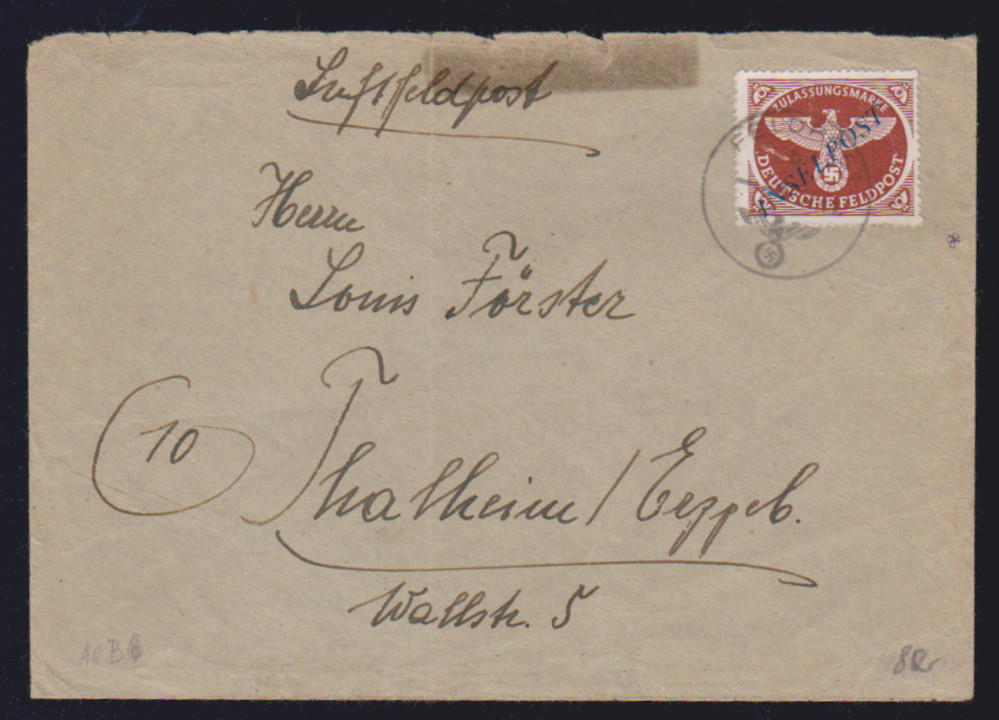 Luftfeldpost
ZULASSUNGSMARKE
INSELPOST
DEUTSCHE FELDPOST
Herrn
Louis Förster
10
Thalheim / Erzgeb.
Wallstr. 5
10 B